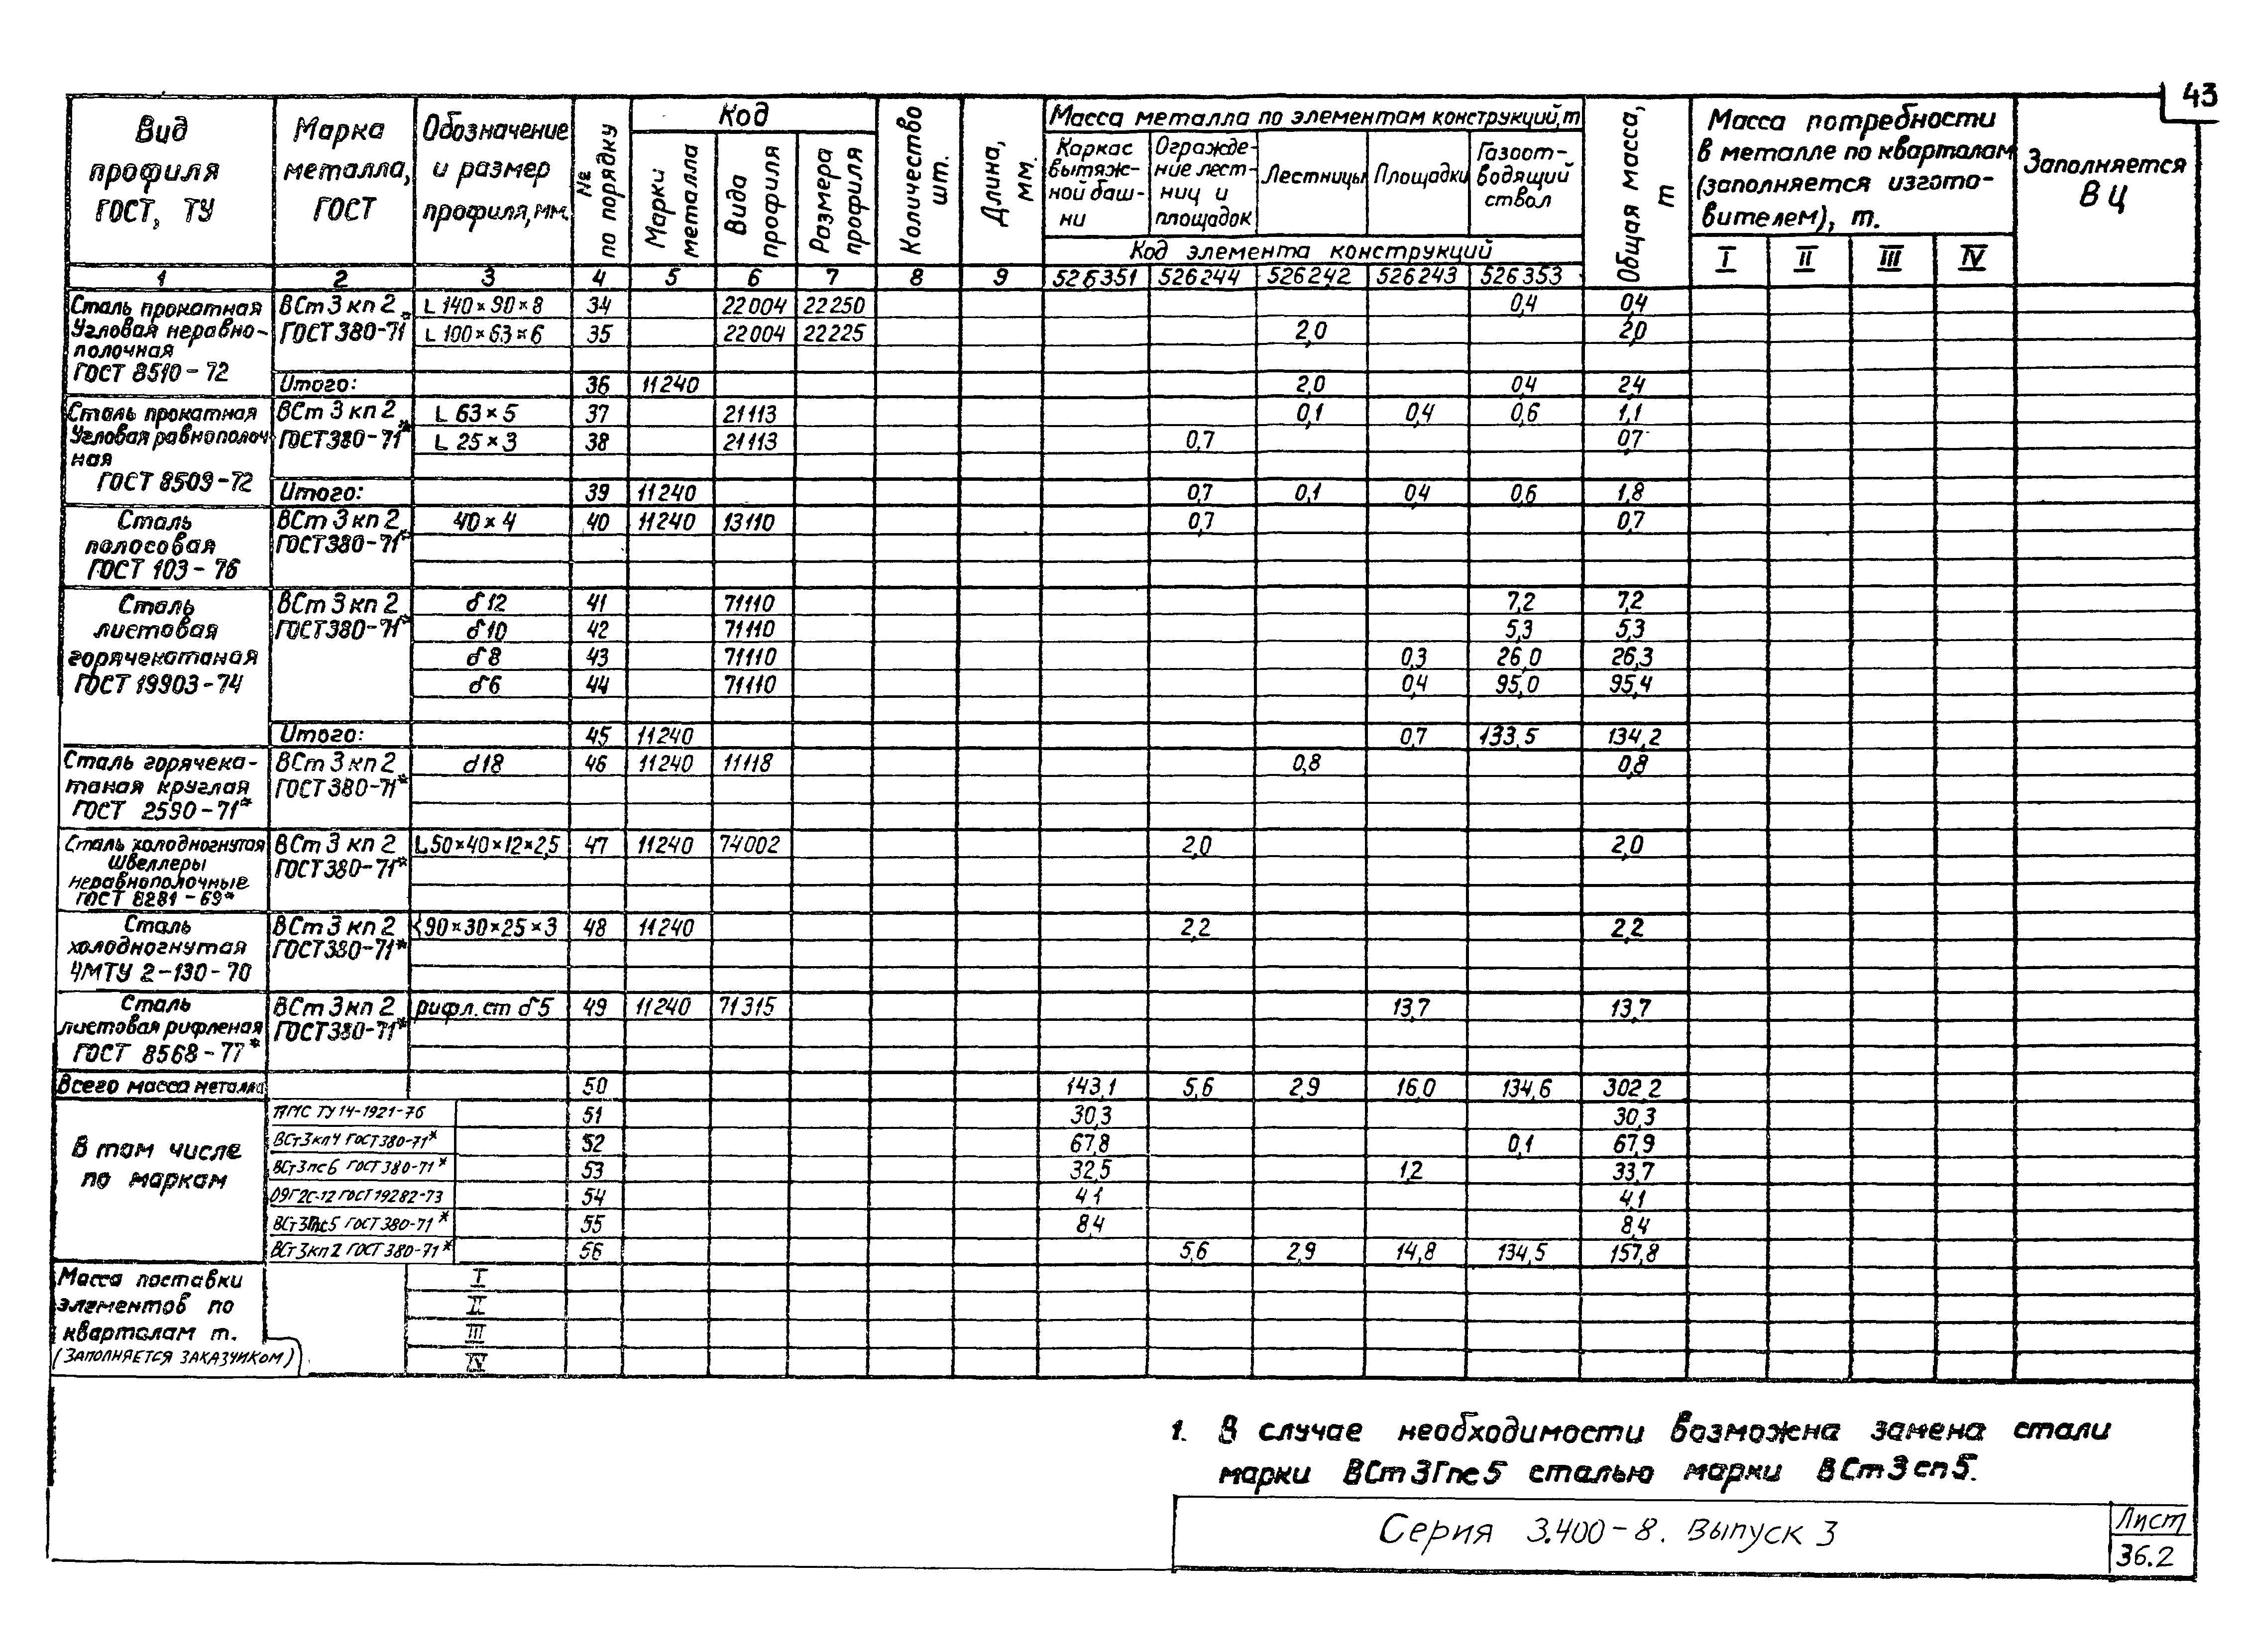 43
Вид профиля ГОСТ, ТУ
Марка металла, ГОСТ
Обозначение и размер профиля, мм.
№ по порядку
Код
Марки металла
Вида профиля
Размера профиля
Количество шт.
Длина, мм.
Масса металла по элементам конструкций, т
Каркас вытяжной башни
Ограждение лестниц и площадок
Лестницы
Площадки
Газоотводящий ствол
Код элемента конструкций
Общая масса, т
Масса потребности в металле по кварталам (заполняется изготовителем), т.
I II III IV
Заполняется ВЦ
1 2 3 4 5 6 7 8 9 526351 526244 526242 526243 526353
Сталь прокатная ВСт3кп2 L 140×90×8 34 22004 22250 0,4 0,4
Угловая неравно- ГОСТ 380-71* L 100×63×6 35 22004 22225 2,0 2,0
полочная
ГОСТ 8510-72 Итого: 36 11240 2,0 0,4 2,4
Сталь прокатная ВСт3кп2 L 63×5 37 21113 0,1 0,4 0,6 1,1
Угловая равнополоч ГОСТ 380-71* L 25×3 38 21113 0,7 0,7
ная
ГОСТ 8509-72 Итого: 39 11240 0,7 0,1 0,4 0,6 1,8
Сталь ВСт3кп2 40×4 40 11240 13110 0,7 0,7
полосовая ГОСТ 380-71*
ГОСТ 103-76
Сталь ВСт3кп2 δ12 41 71110 7,2 7,2
листовая ГОСТ 380-71* δ10 42 71110 5,3 5,3
горячекатаная δ8 43 71110 0,3 26,0 26,3
ГОСТ 19903-74 δ6 44 71110 0,4 95,0 95,4
Итого: 45 11240 0,7 133,5 134,2
Сталь горячека- ВСт3кп2 d18 46 11240 11118 0,8 0,8
таная круглая ГОСТ 380-71*
ГОСТ 2590-71*
Сталь холодногнутая ВСт3кп2 L50×40×12×2,5 47 11240 74002 2,0 2,0
швеллеры ГОСТ 380-71*
неравнополочные
ГОСТ 8281-69*
Сталь ВСт3кп2 90×30×25×3 48 11240 2,2 2,2
холодногнутая ГОСТ 380-71*
ЧМТУ 2-130-70
Сталь ВСт3кп2 рифл. ст δ5 49 11240 71315 13,7 13,7
листовая рифленая ГОСТ 380-71*
ГОСТ 8568-77*
Всего масса металла 50 143,1 5,6 2,9 16,0 134,6 302,2
В том числе по маркам
ТУ 14-1921-76 51 30,3 30,3
ВСт3кп4 ГОСТ 380-71* 52 67,8 0,1 67,9
ВСт3пс6 ГОСТ 380-71* 53 32,5 1,2 33,7
09Г2С-12 ГОСТ 19282-73 54 4,1 4,1
ВСт3Гпс5 ГОСТ 380-71* 55 8,4 8,4
ВСт3кп2 ГОСТ 380-71* 56 5,6 2,9 14,8 134,5 157,8
Масса поставки I
элементов по II
кварталам т. III
(ЗАПОЛНЯЕТСЯ ЗАКАЗЧИКОМ) IV
1. В случае необходимости возможна замена стали
марки ВСт3Гпс5 сталью марки ВСт3сп5.
Серия 3.400-8. Выпуск 3
Лист
36.2